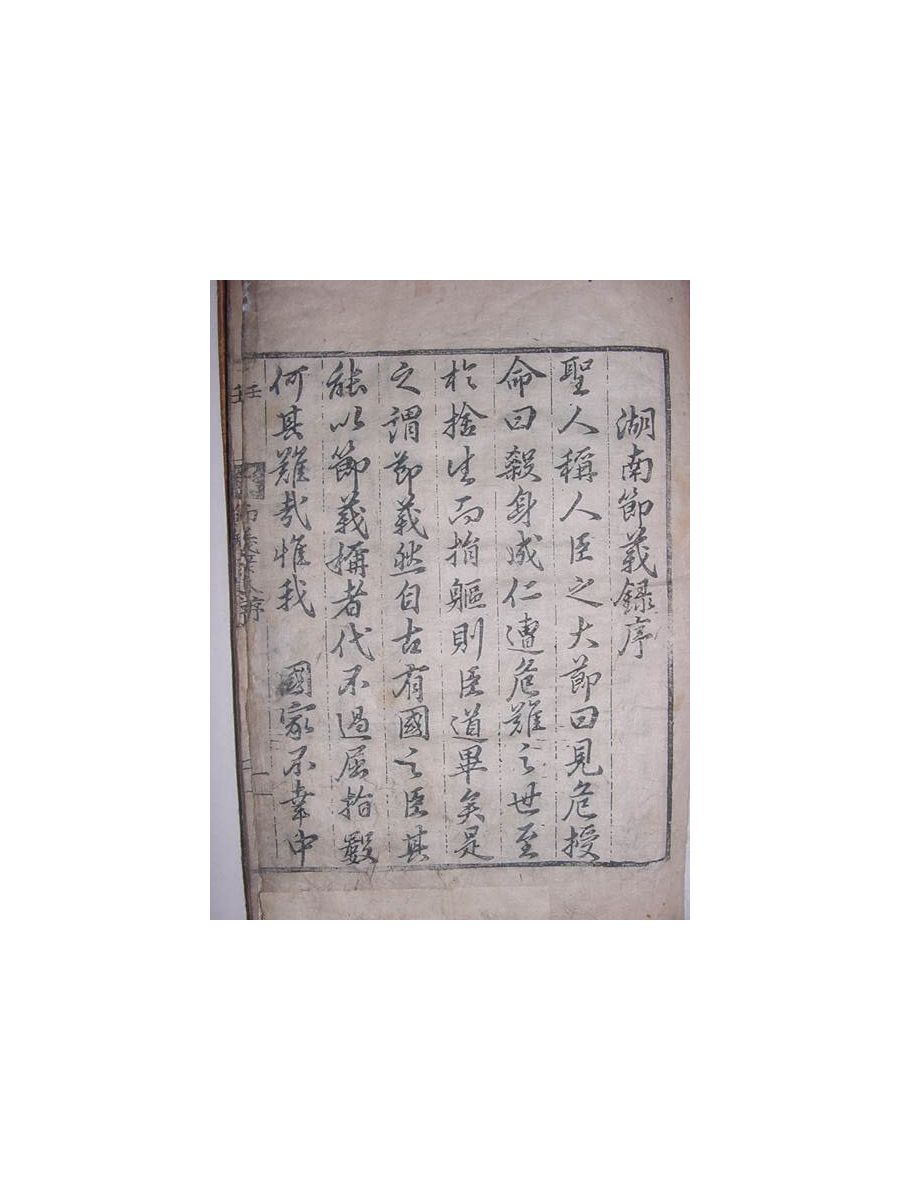 湖南節義録序
聖人稱人臣之大節曰見危授
命曰殺身成仁遭危難之世至
於捨生而捐軀則臣道畢矣是
之謂節義然自古有國之臣其
能以節義稱者代不過屈指數
何其難哉惟我 國家不幸中